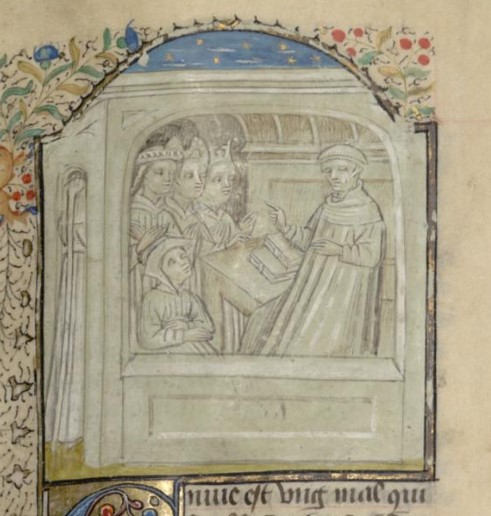 nuie est vng mal qui